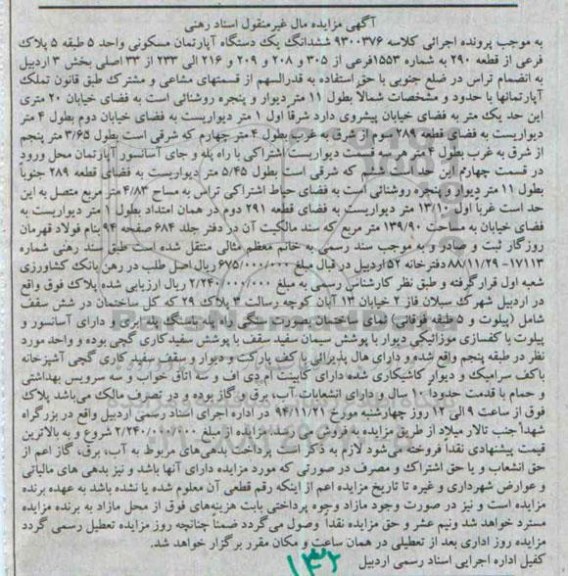 آگهی مزایده مال غیرمنقول اسناد رهنی
به موجب پرونده اجرائی کلاسه ۹۳۰۰۳۷۶ ششدانگ یک دستگاه آپارتمان مسکونی واحد ۵ طبقه ۵ پلاک
فرعی از قطعه ۲۹۰ به شماره ۱۵۵۳فرعی از ۳۰۵ و ۲۰۸ و ۲۰۹ و ۲۱۶ الی ۲۳۳ از ۳۳ اصلی بخش ۳ اردبیل
به انضمام تراس در ضلع جنوبی با حق استفاده به قدرالسهم از قسمتهای مشاعی و مشترک طبق قانون تملک
آپارتمانها با حدود و مشخصات شمالاً بطول ۱۱ متر دیوار و پنجره روشنائی است به فضای خیابان ۲۰ متری
این حد یک متر به فضای خیابان پیشروی دارد شرقا اول ۱ متر دیواریست به فضای خیابان دوم بطول ۴ متر
دیواریست به فضای قطعه ۲۸۹ سوم از شرق به غرب بطول ۴ متر چهارم که شرقی است بطول ۳/۶۵ متر پنجم
از شرق به غرب بطول ۴ متر سه قسمت دیواریست اشتراکی با راه پله و جای آسانسور آپارتمان محل ورود
در قسمت چهارم این حد است ششم که شرقی است بطول ۵/۴۵ متر دیواریست به فضای قطعه ۲۸۹ جنوباً
بطول ۱۱ متر دیوار و پنجره روشنائی است به فضای حیاط اشتراکی تراس به مساح ۴/۸۳ متر مربع متصل به این
حد است غربا اول ۱۳/۱۰ متر دیواریست به فضای قطعه ۲۹۱ دوم در همان امتداد بطول ۱ متر دیواریست به
فضای خیابان به مساحت ۱۳۹/۹۰ متر مربع که سند مالکیت آن در دفتر جلد ۶۸۴ صفحه ۹۴ بنام فولاد قهرمان
روزگار ثبت و صادر و به موجب سند رسمی به خانم معظم مثالی منتقل شده است طبق سند رهنی شماره
۱۷۱۱۳- ۸۸/۱۱/۲۹ دفترخانه ۵۲ اردبیل در قبال مبلغ ۶۷۵/۰۰۰/۰۰۰ ریال اصل طلب در رهن بانک کشاورزی
شعبه اول قرار گرفته و طبق نظر کارشناس رسمی به مبلغ ۲/۲۴۰/۰۰۰/۰۰۰ ریال ارزیابی شده پلاک فوق واقع
در اردبیل شهرک سبلان فاز ۲ خیابان ۱۳ آبان کوچه رسالت ۳ پلاک ۲۹ که کل ساختمان در شش سقف
شامل (پیلوت و ۵ طبقه فوقانی) نمای ساختمان بصورت سنگی راه پله سنگ پله بری و دارای آسانسور و
پیلوت با کفسازی موزائیکی دیوار با پوشش سیمان سفید سقف با پوشش سفید کاری گچی بوده و واحد مورد
نظر در طبقه پنجم واقع شده و دارای هال پذیرائی با کف پارکت و دیوار و سقف سفید کاری گچی آشپزخانه
با کف سرامیک و دیوار کاشیکاری شده دارای کابینت ام دی اف و سه اتاق خواب و سه سرویس بهداشتی
و حمام با قدمت حدوداً ۱۰ سال و دارای انشعابات آب، برق و گاز بوده و در تصرف مالک می‌باشد پلاک
فوق از ساعت ۹ الی ۱۲ روز چهارشنبه مورخ ۹۴/۱۱/۲۱ در اداره اجرای اسناد رسمی اردبیل واقع در بزرگراه
شهدا جنب تالار میلاد از طریق مزایده به فروش می رسد مزایده از مبلغ ۲/۲۴۰/۰۰۰/۰۰۰ شروع و به بالاترین
قیمت پیشنهادی نقداً فروخته می‌شود لازم به ذکر است پرداخت بدهی‌های مربوط به آب، برق، گاز اعم از
حق انشعاب و یا حق اشتراک و مصرف در صورتی که مورد مزایده دارای آنها باشد و نیز بدهی های مالیاتی
و عوارض شهرداری و غیره تا تاریخ مزایده اعم از اینکه رقم قطعی آن معلوم شده یا نشده باشد به عهده برنده
مزایده است و نیز در صورت وجود مازاد وجوه پرداختی بابت هزینه‌های فوق از محل مازاد به برنده مزایده
مسترد خواهد شد ونیم عشر و حق مزایده نقداً وصول می‌گردد ضمنا چنانچه روز مزایده تعطیل رسمی گردد
مزایده روز اداری بعد از تعطیلی در همان ساعت و مکان مقرر برگزار خواهد شد.
کفیل اداره اجرایی اسناد رسمی اردبیل